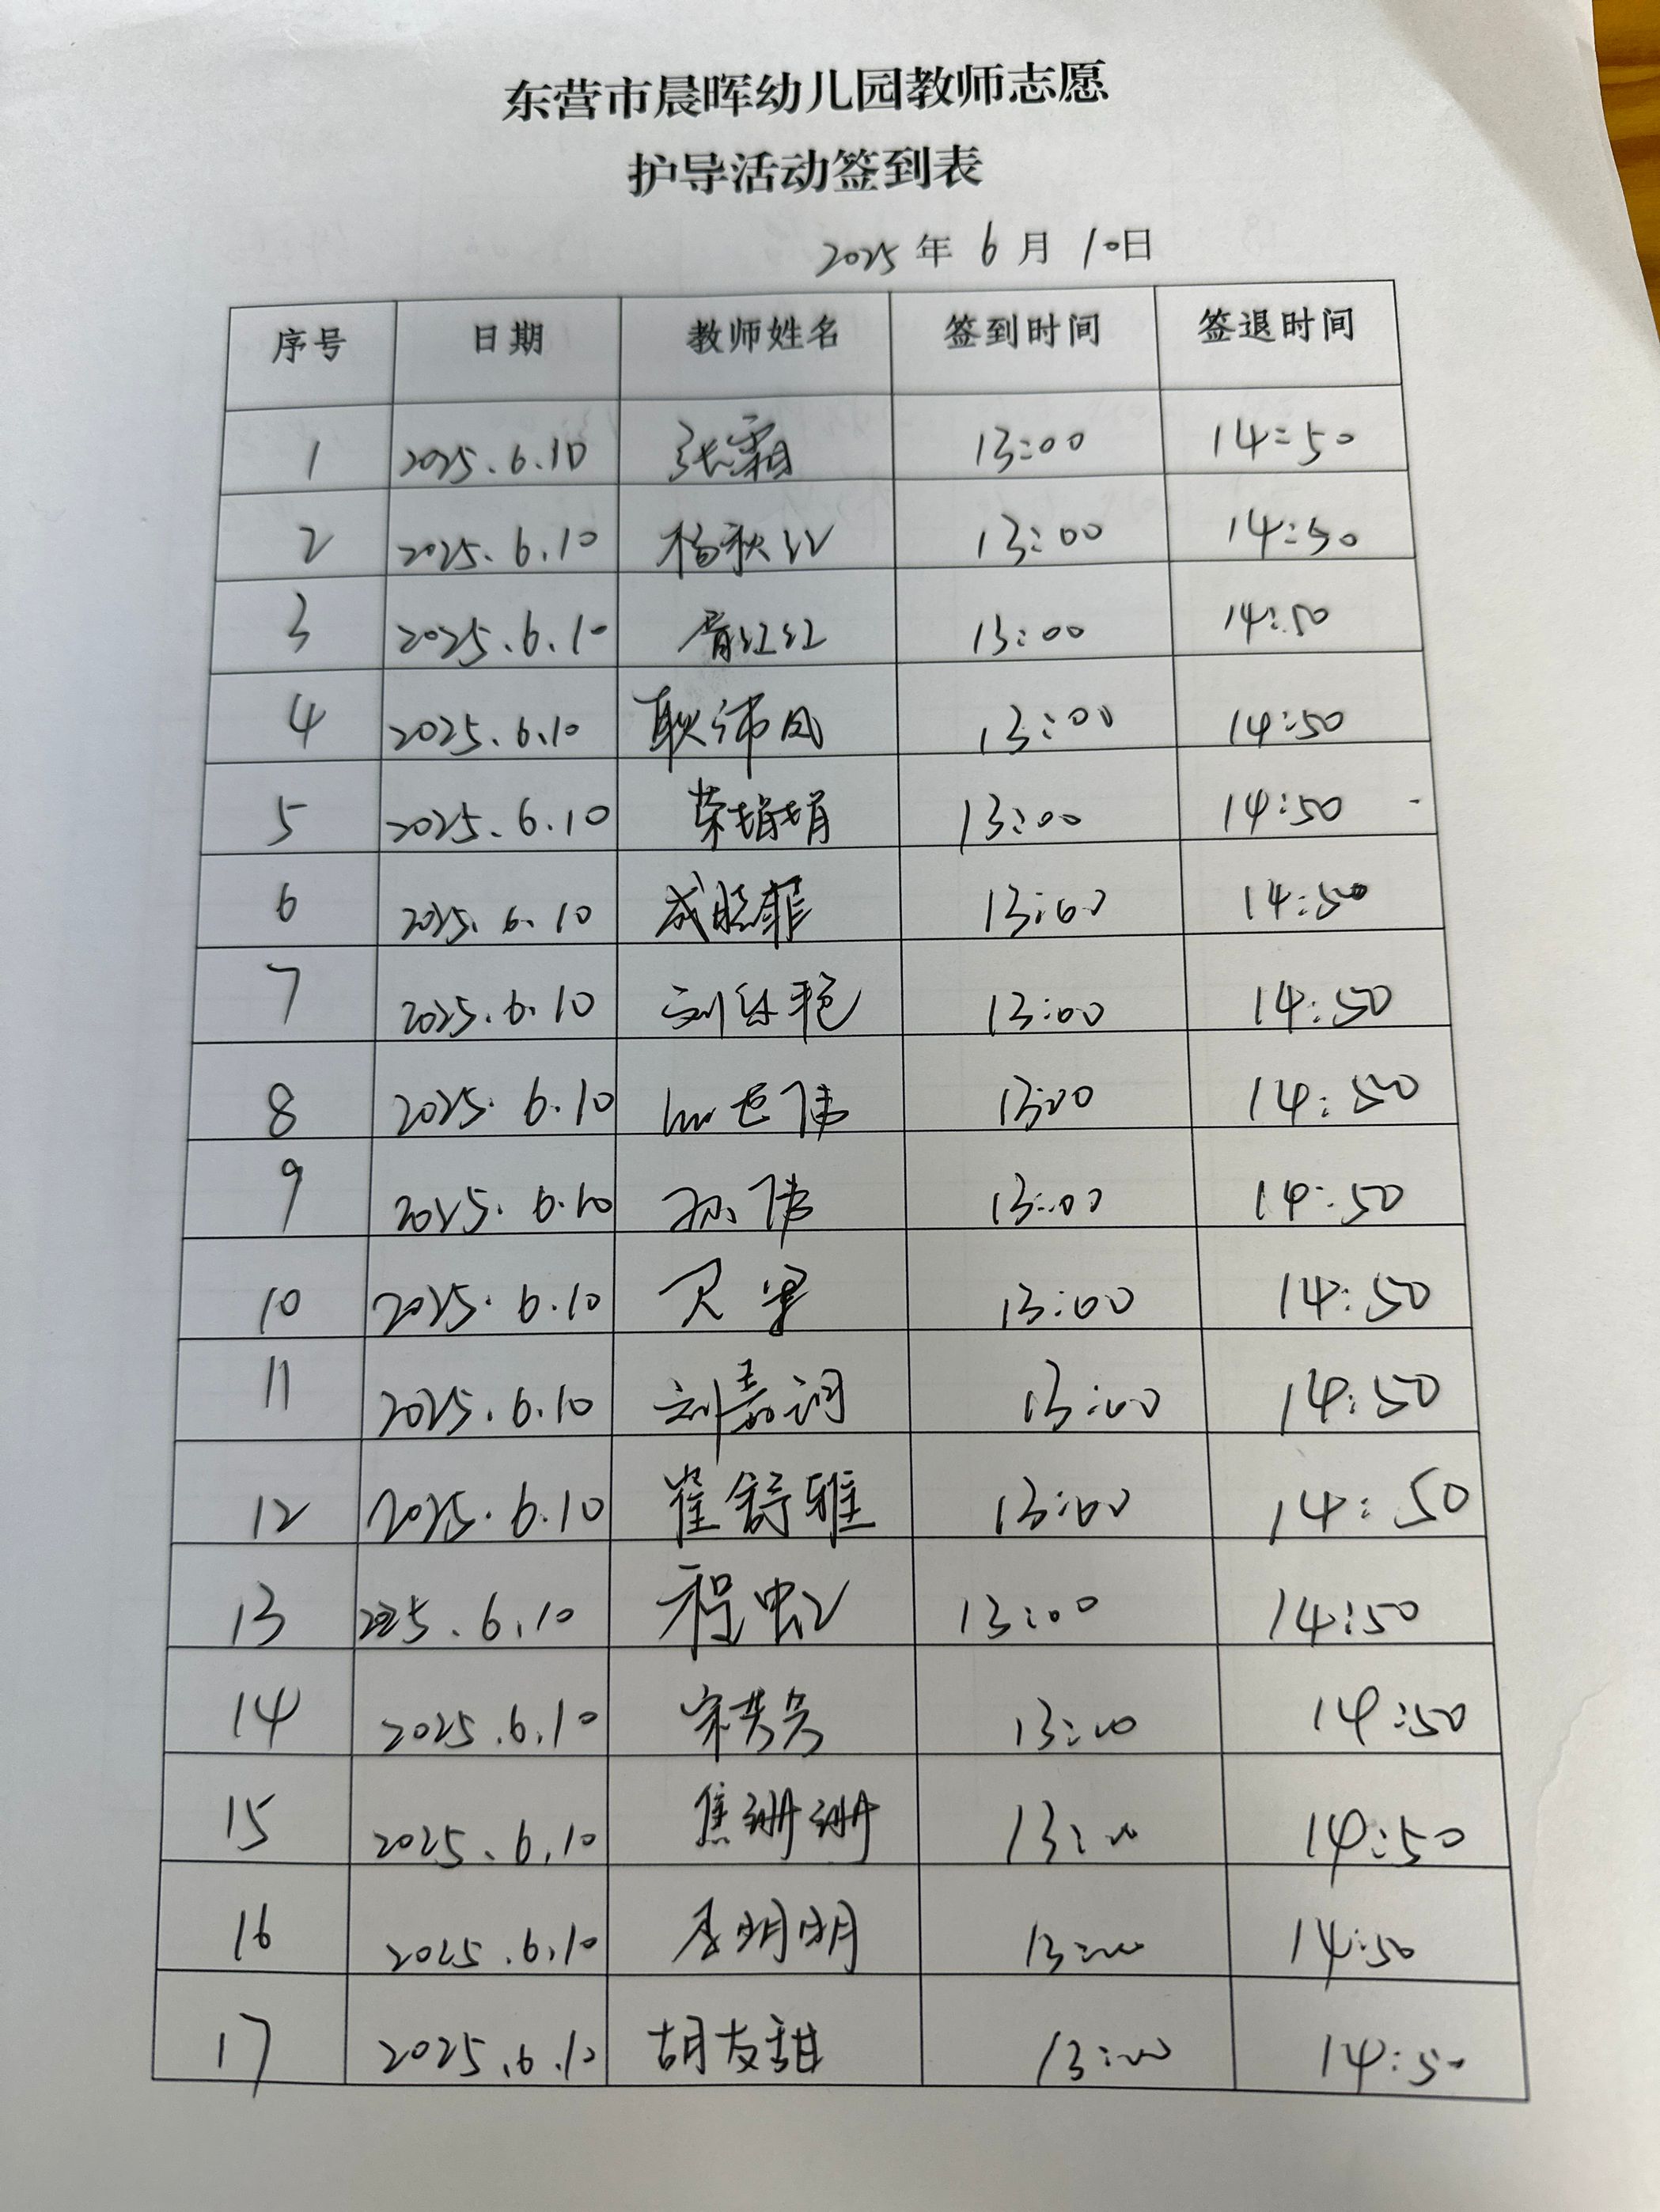 东营市晨晖幼儿园教师志愿
护导活动签到表
2025年6月10日
序号 日期 教师姓名 签到时间 签退时间
1 2025.6.10 张霜 13:00 14:50
2 2025.6.10 杨秋红 13:00 14:50
3 2025.6.10 胥红红 13:00 14:50
4 2025.6.10 耿沛凤 13:00 14:50
5 2025.6.10 荣娟娟 13:00 14:50
6 2025.6.10 成晓菲 13:00 14:50
7 2025.6.10 刘 艳 13:00 14:50
8 2025.6.10 13:00 14:50
9 2025.6.10 孙伟 13:00 14:50
10 2025.6.10 13:00 14:50
11 2025.6.10 刘嘉词 13:00 14:50
12 2025.6.10 崔舒雅 13:00 14:50
13 2025.6.10 程虹 13:00 14:50
14 2025.6.10 宋芳芳 13:00 14:50
15 2025.6.10 焦珊珊 13:00 14:50
16 2025.6.10 李明明 13:00 14:50
17 2025.6.10 胡友甜 13:00 14:50